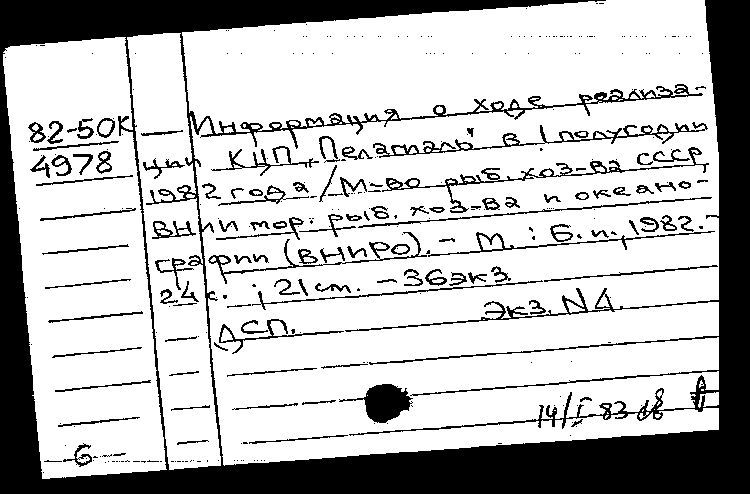 82-50К Информация о ходе реализа-
4978 ции КЦП "Пелагиаль" в I полугодии
1982 года / М-во рыб. хоз-ва СССР,
ВНИИ мор. рыб. хоз-ва и океано-
графии (ВНИРО). - М. : Б. и., 1982. -
24 с. ; 21 см. - 36 экз.
ДСП. Экз. N 4.
14/I-83
6